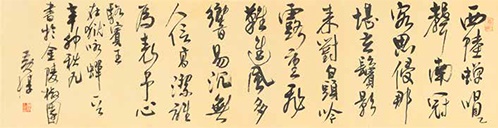 西陸蟬唱
聲南冠
客思侵那
堪玄鬢影
来對白頭吟
露重飛
難進風多
響易沉無
人信高潔誰
為表予心
駱賓王
在獄詠蟬
辛卯秋月
書於金陵